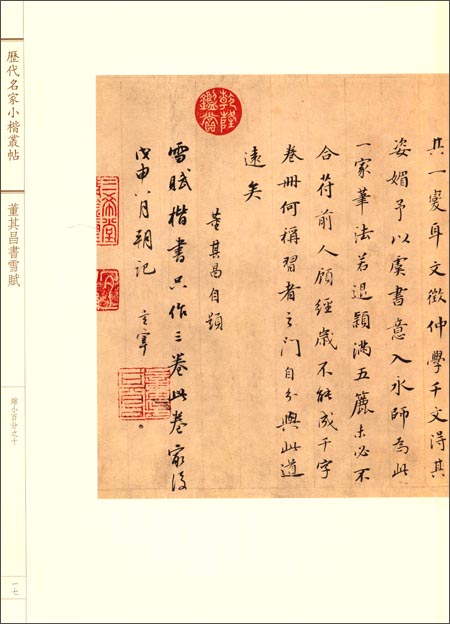 其一變耳文徵仲學千文得其
姿媚予以虞書意入永師為此
一家筆法若退穎滿五簏未必不
合符前人顧經歲不能成千字
卷冊何稱習者之門自分與此道
遠矣
董其昌自題
雪賦楷書只作三卷此卷最後
戊申八月朔記 玄宰
乾隆鑑賞
三希堂
歷代名家小楷叢帖
董其昌書雪賦
縮小百分之十
一七